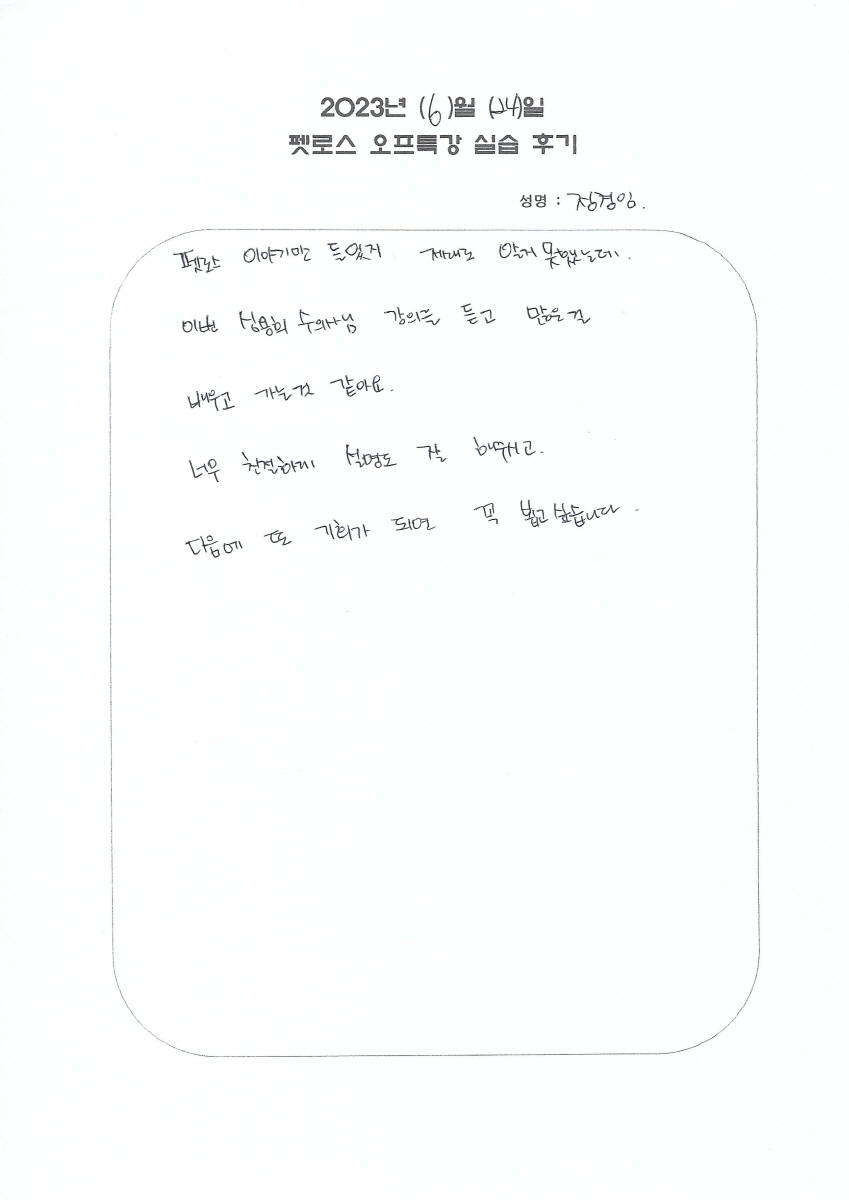 2023년 (6)월 (24)일
펫로스 오프특강 실습 후기
성명 : 장경임.
펫로스 이야기만 들었지 제대로 알지 못했는데.
이번 심용희 수의사님 강의를 듣고 많은걸
배우고 가는것 같아요.
너무 친절하게 설명도 잘 해주시고.
다음에 또 기회가 되면 꼭 뵙고싶습니다.